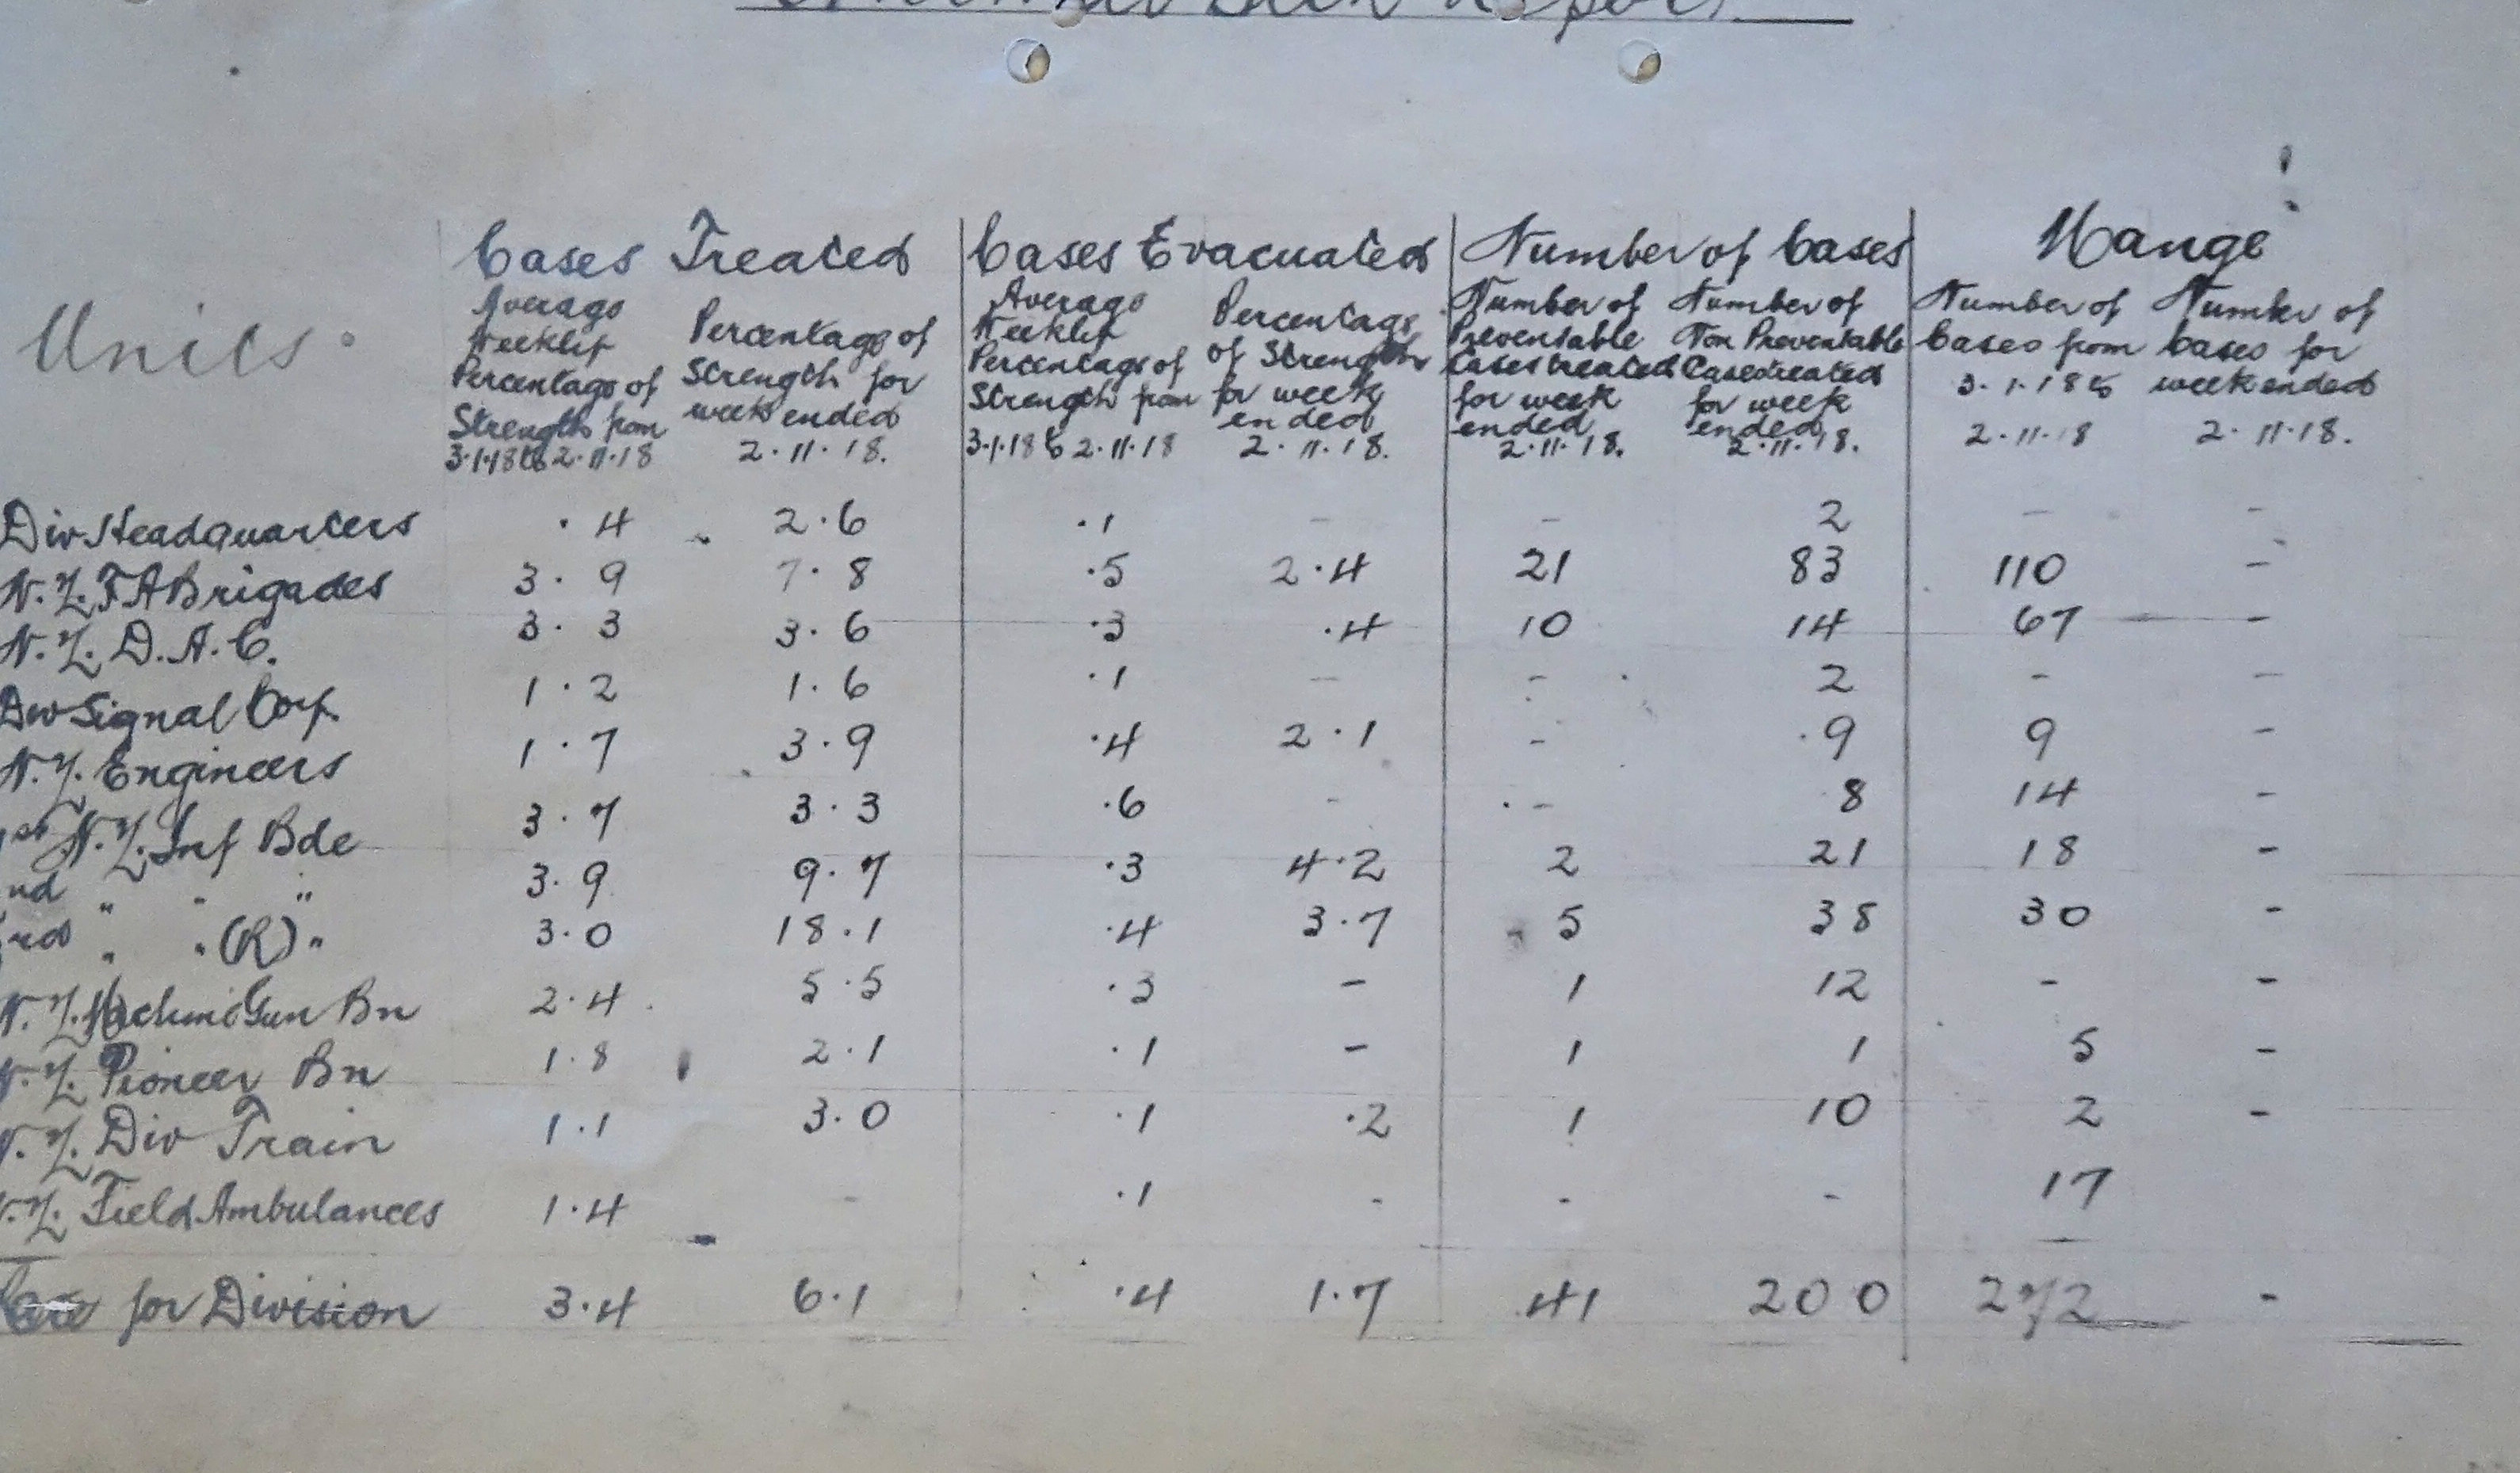 Sick Report
Cases Treated Cases Evacuated Number of Cases Mange
Units.
Average Weekly Percentage of Strength from 3.1.18 to 2.11.18
Percentage of Strength for week ended 2.11.18.
Average Weekly Percentage of Strength from 3.1.18 to 2.11.18
Percentage of Strength for week ended 2.11.18.
Number of Preventable Cases treated for week ended 2.11.18.
Number of Non Preventable Cases treated for week ended 2.11.18.
Number of Cases from 3.1.18 to 2.11.18
Number of Cases for week ended 2.11.18.
Div Headquarters .4 2.6 .1 - - 2 - -
N.Z. F A Brigades 3.9 7.8 .5 2.4 21 83 110 -
N.Z. D.A.C. 3.3 3.6 .3 .4 10 14 67 -
Div Signal Corp. 1.2 1.6 .1 - - 2 - -
N.Z. Engineers 1.7 3.9 .4 2.1 - 9 9 -
1st N.Z. Inf Bde 3.7 3.3 .6 - - 8 14 -
nd " " " 3.9 9.7 .3 4.2 2 21 18 -
3rd " " (R) " 3.0 18.1 .4 3.7 5 38 30 -
N.Z. Machine Gun Bn 2.4 5.5 .3 - 1 12 - -
N.Z. Pioneer Bn 1.8 2.1 .1 - 1 1 5 -
N.Z. Div Train 1.1 3.0 .1 .2 1 10 2 -
N.Z. Field Ambulances 1.4 - .1 - - - 17
for Division 3.4 6.1 .4 1.7 41 200 272 -